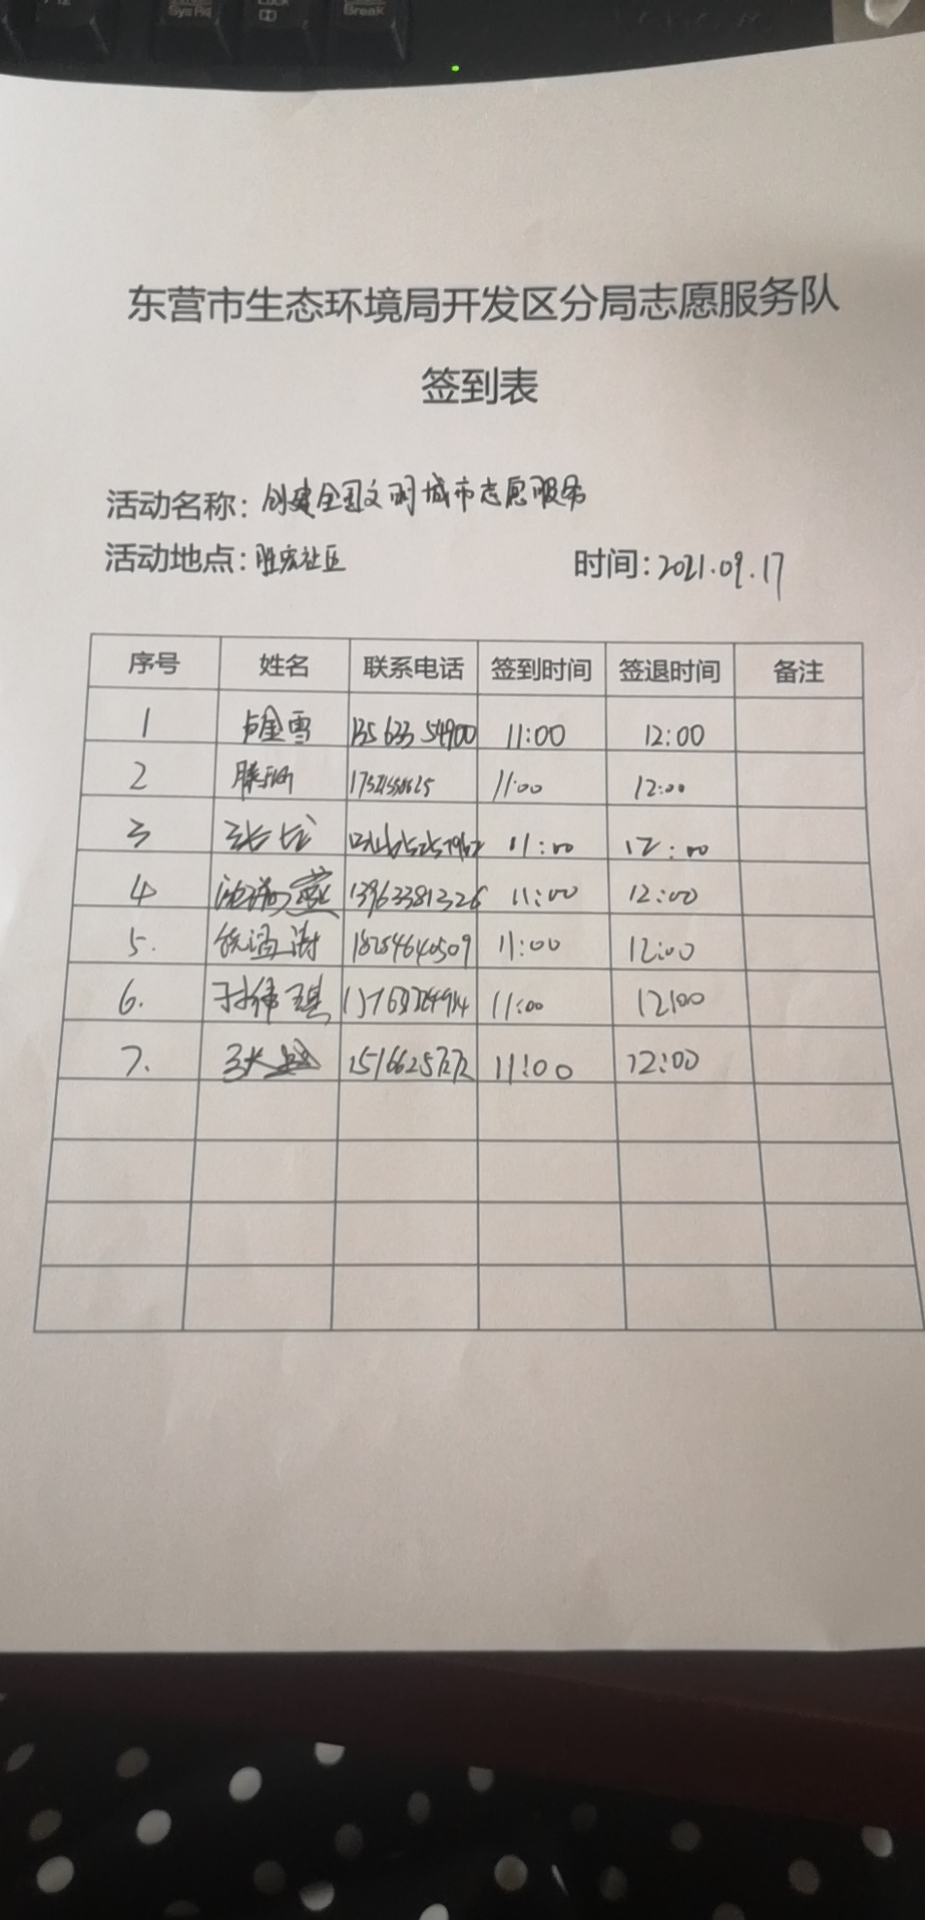 Sys Rq
Break
东营市生态环境局开发区分局志愿服务队
签到表
活动名称：创建全国文明城市志愿服务
活动地点：胜宏社区 时间：2021.09.17
序号 姓名 联系电话 签到时间 签退时间 备注
1 卢金雪 13563354900 11:00 12:00
2 11:00 12:00
3 张 11:00 12:00
4 13963381326 11:00 12:00
5. 18254640509 11:00 12:00
6. 11:00 12:00
7. 11:00 12:00